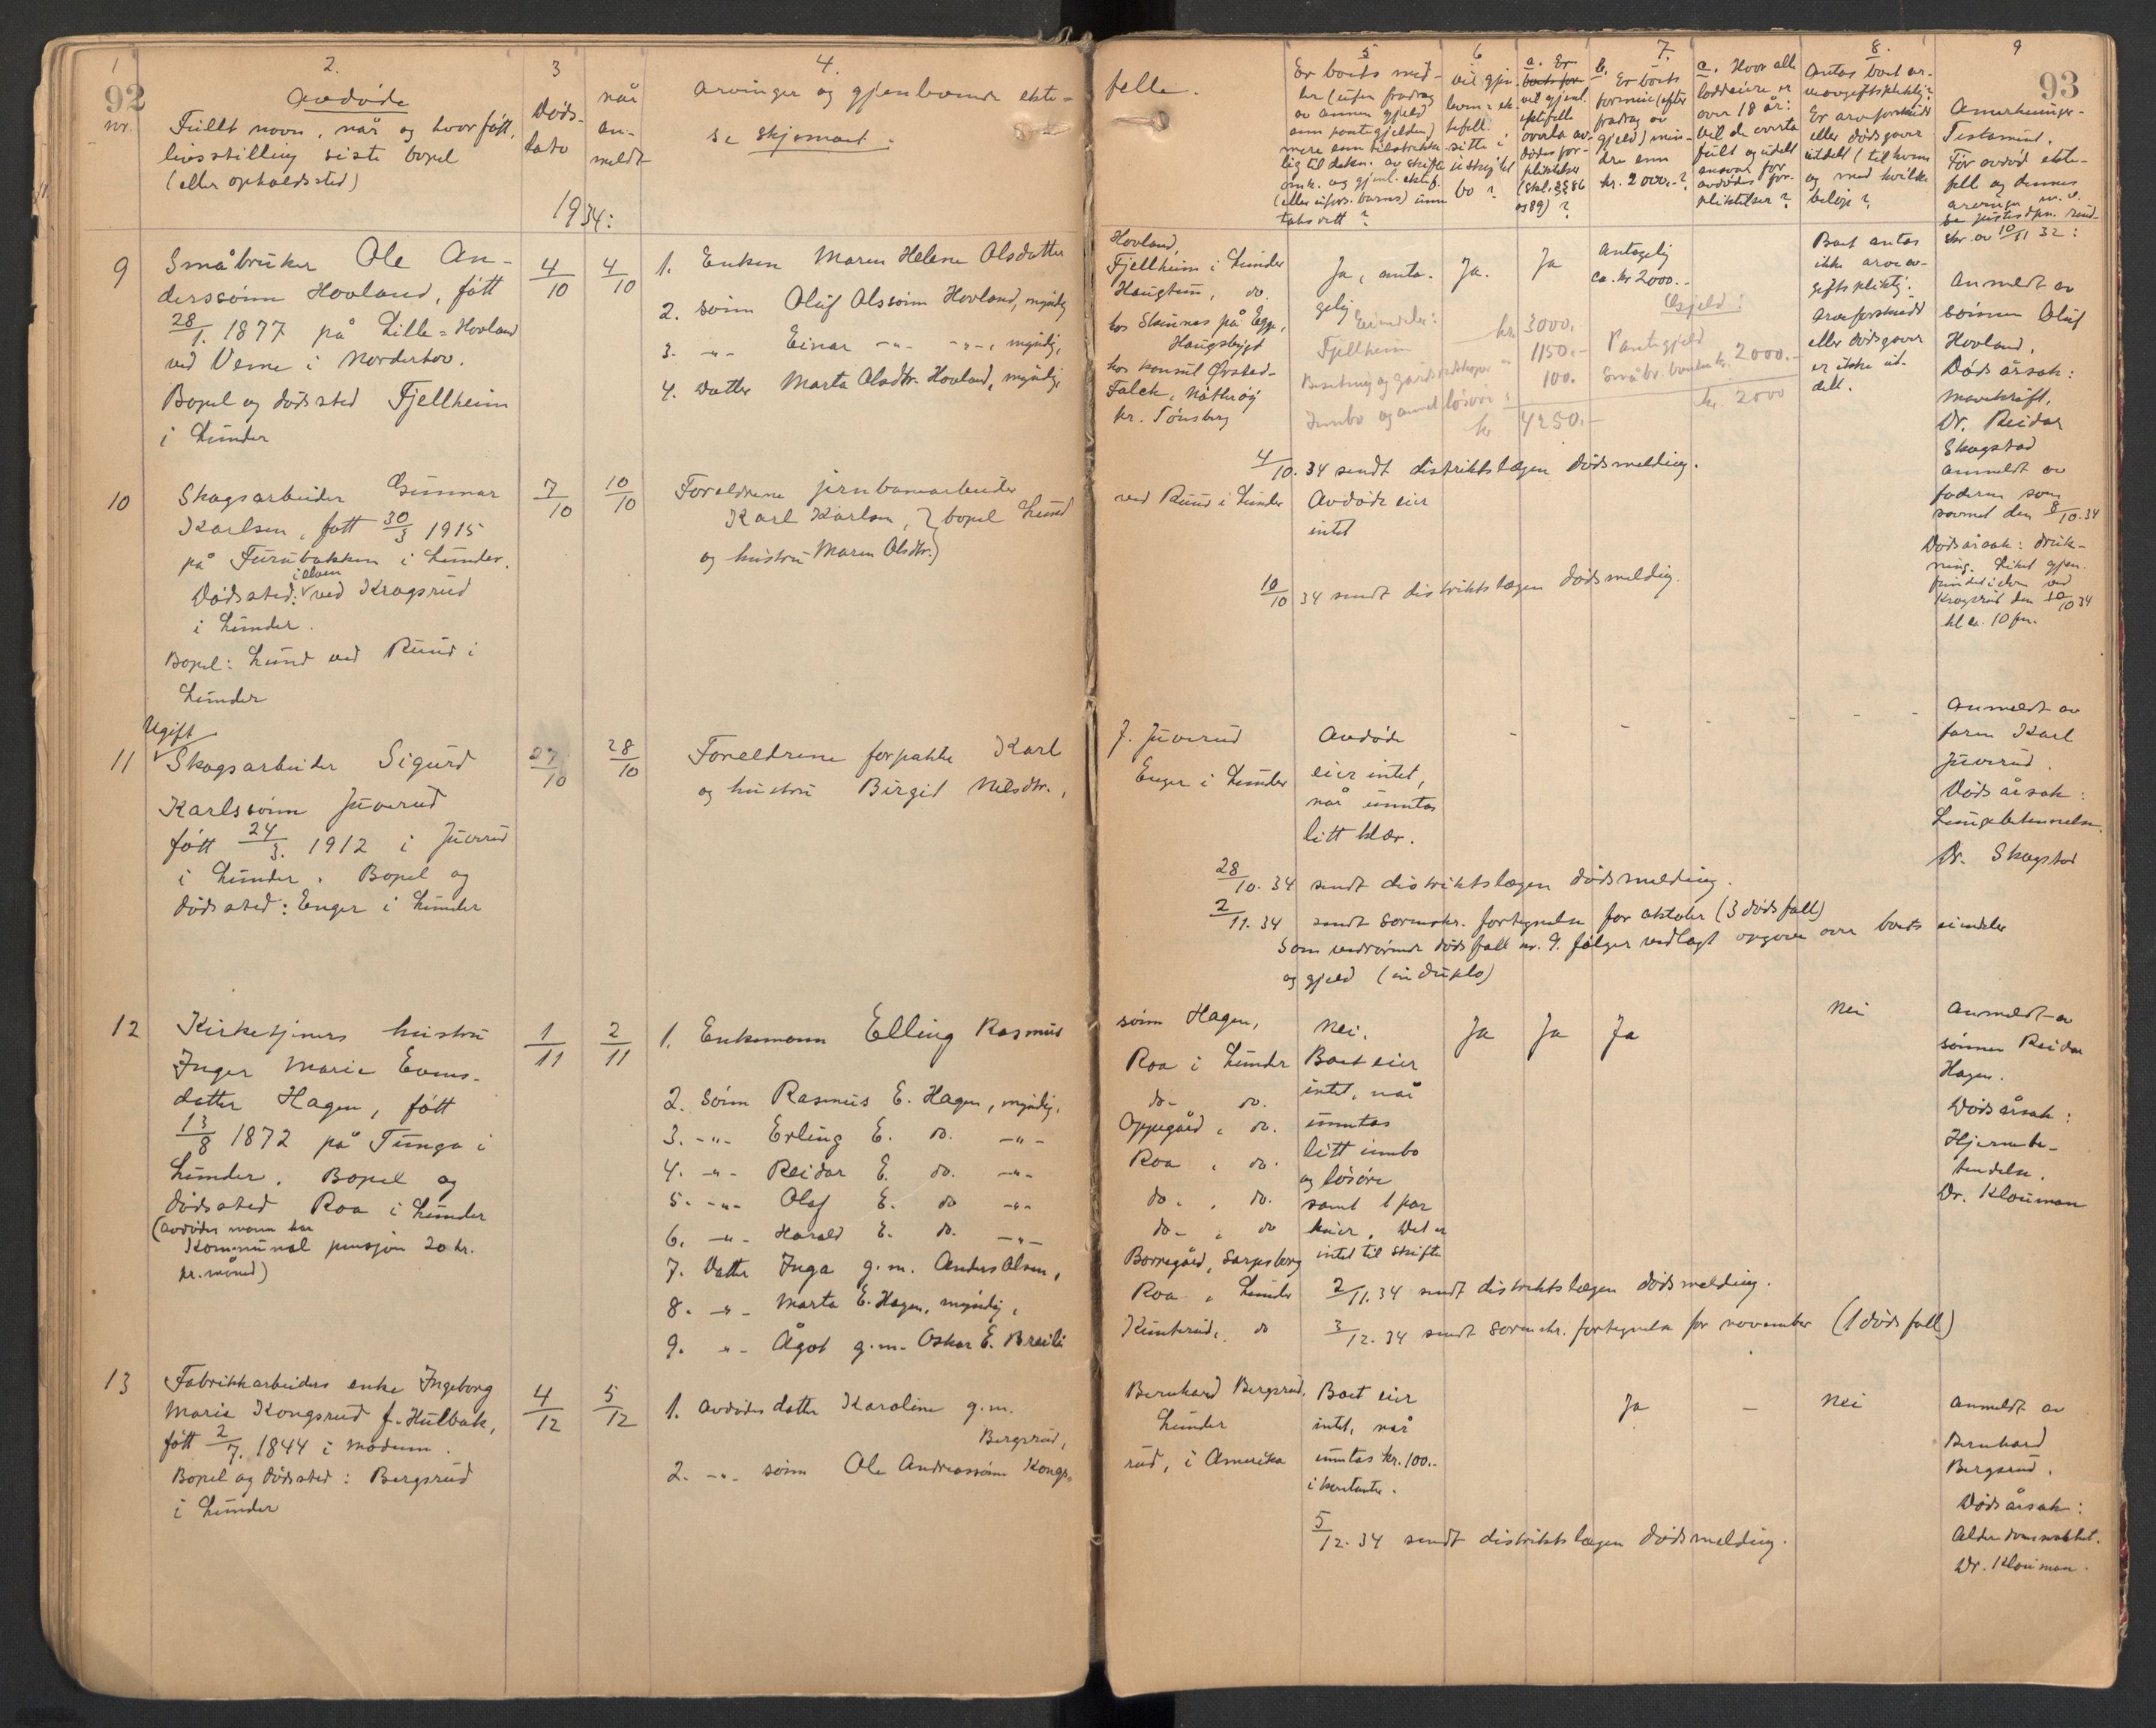 92
1
nr.
2.
Avdøde
Fullt navn, når og hvor født,
livsstilling siste bopel
(eller opholdssted)
3
Døds-
dato
når
an-
meldt
1934:
4.
Arvinger og gjenlevende ekte-
se skjemaet.
9
Småbruker Ole An-
derssønn Hovland, født
28/1. 1877 på Lille-Hovland
ved Veme i Norderhov.
Bopel og dødssted Fjellheim
i Lunder
4/10
4/10
1. Enken Maren Helene Olsdatter
2. sønn Oluf Olssønn Hovland, myndig
3. -"- Einar -"- -"-, myndig,
4. Datter Marta Olsdtr. Hovland, myndig,
10
Skogsarbeider Gunnar
Karlsen, født 30/3 1915
på Furubakken i Lunder.
i elven
Dødssted: ved Kragsrud
i Lunder.
Bopel: Lund ved Ruud i
Lunder
7/10
10/10
Foreldrene jernbanearbeider
Karl Karlsen, } bopel Lund
og hustru Maren Olsdtr.
11
Ugift
Skogsarbeider Sigurd
Karlssønn Juverud
født 24/3. 1912 i Juverud
i Lunder. Bopel og
dødssted: Enger i Lunder
27/10
28/10
Foreldrene forpakter Karl
og hustru Birgit Nilsdtr.,
12
Kirketjeners hustru
Inger Marie Evens-
datter Hagen, født
13/8 1872 på Tunga i
Lunder. Bopel og
dødssted Roa i Lunder
(avdødes mann har
Kommunal pensjon 20 kr.
pr. måned)
1/11
2/11
1. Enkemann Elling Rasmus
2. Sønn Rasmus E. Hagen, myndig,
3. -"- Erling E. do. -"-
4. -"- Reidar E. do. -"-
5. -"- Olaf E. do -"-
6. -"- Harald E. do. -"-
7. Datter Inga g.m. Anders Olsen,
8. -"- Marta E. Hagen, myndig,
9. -"- Ågot g.m. Oskar E. Breili
13
Fabrikkarbeiders enke Ingeborg
Marie Kongsrud f. Hulbak,
født 2/7. 1844 i Modum.
Bopel og dødssted: Bergsrud
i Lunder
4/12
5/12
1. avdødes datter Karoline g.m.
Bergsrud,
2. -"- sønn Ole Andreassønn Kongs-
93
felle.
5
Er boets mid-
ler (uten fradrag
av annen gjeld
enn pantegjelden)
mere enn tilstrekke-
lig til dekn. av skifte
omk. og gjenl. ektef.
(eller ufors. barns) unn
tagsrett?
6
vil gjen-
levende ek-
tefelle
sitte i
uskiftet
bo?
7.
a. Er
boets for-
vil gjenl.
ektefelle
overta av-
dødes for-
pliktelser
(skl. §§ 86
og 89)?
b. Er boets
formue (efter
fradrag av
gjeld) min-
dre enn
kr. 2000.-?
c. Hvor alle
loddeiere er
over 18 år:
vil de overta
fullt og udelt
ansvar for
avdødes for-
pliktelser?
8.
Antas boet ar-
veavgiftspliktig?
Er arveforskudd
eller dødsgaver
utdelt (til hvem
og med hvilke
beløp?
9
Anmerkninger.
Testament.
Før avdød ekte-
felle og dennes
arvinger m.v.
Se justisdpn. rund-
skr. av 10/11 32:
Hovland,
Fjellheim i Lunder
Haugtun, do.
hos Skinnes på Egge,
Haugsbygd
hos konsul Ørsted-
Falck, Nøtterøy
pr. Tønsberg
Ja, anta-
gelig
Ja.
Ja
Antagelig
ca. kr 2000.-
Eiendeler:
Fjellheim kr. 3000.
Besetning og gårdsredskaper " 1150.-
Innbo og annet løsøre : 100.
kr. 4250.-
Gjeld:
Pantegjeld
Småbr. banken kr. 2000.-
kr. 2000
Boet antas
ikke arveav-
giftspliktig.
Arveforskudd
eller dødsgaver
er ikke ut-
delt.
Anmeldt av
sønnen Oluf
Hovland.
Dødsårsak:
Mavekræft.
Dr. Reidar
Skagstad
4/10. 34 sendt distriktslægen dødsmelding.
ved Ruud i Lunder
Avdøde eier
intet
anmeldt av
faderen som
savnet den 8/10.34
Dødsårsak: druk-
ning. Liket gjen-
funnet i elven ved
Kragsrud den 10/10 34
kl ca. 10 fm.
10/10 34 sendt distriktslægen dødsmelding.
f. Juverud
Enger i Lunder
Avdøde
eier intet,
når unntas
litt klær.
- - - - - -
Anmeldt av
faren Karl
Juverud.
Dødsårsak:
Lungebetennelse.
Dr. Skagstad
28/10. 34 sendt distriktslægen dødsmelding.
2/11. 34 sendt sorenskr. fortegnelse for oktober (3 dødsfall)
Som vedrørende dødsfall nr. 9. følger vedlagt opgave over boets eiendeler
og gjeld (in duplo)
sønn Hagen,
Roa i Lunder
do. do.
Oppegård, do.
Roa, do.
do. , do.
do. , do
Borregård, Sarpsborg
Roa, Lunder
Kinterud, do
Nei.
Boet eier
intet, når
unntas
litt innbo
og løsøre
samt 1 par
kuer. Det er
intet til skifte
Ja
Ja
Ja
Nei
Anmeldt av
sønnen Reidar
Hagen.
Dødsårsak:
Hjernebe-
tendelse.
Dr. Klouman
2/11. 34 sendt distriktslægen dødsmelding.
3/12. 34 sendt sorenskr. fortegnelse for november (1 dødsfall)
Bernhard Bergsrud,
Lunder
rud, i Amerika
Boet eier
intet, når
unntas kr. 100.-
i kontanter.
Ja
-
Nei
Anmeldt av
Bernhard
Bergsrud.
Dødsårsak:
Alderdomssvakhet.
Dr. Klouman.
5/12. 34 sendt distriktslægen dødsmelding.